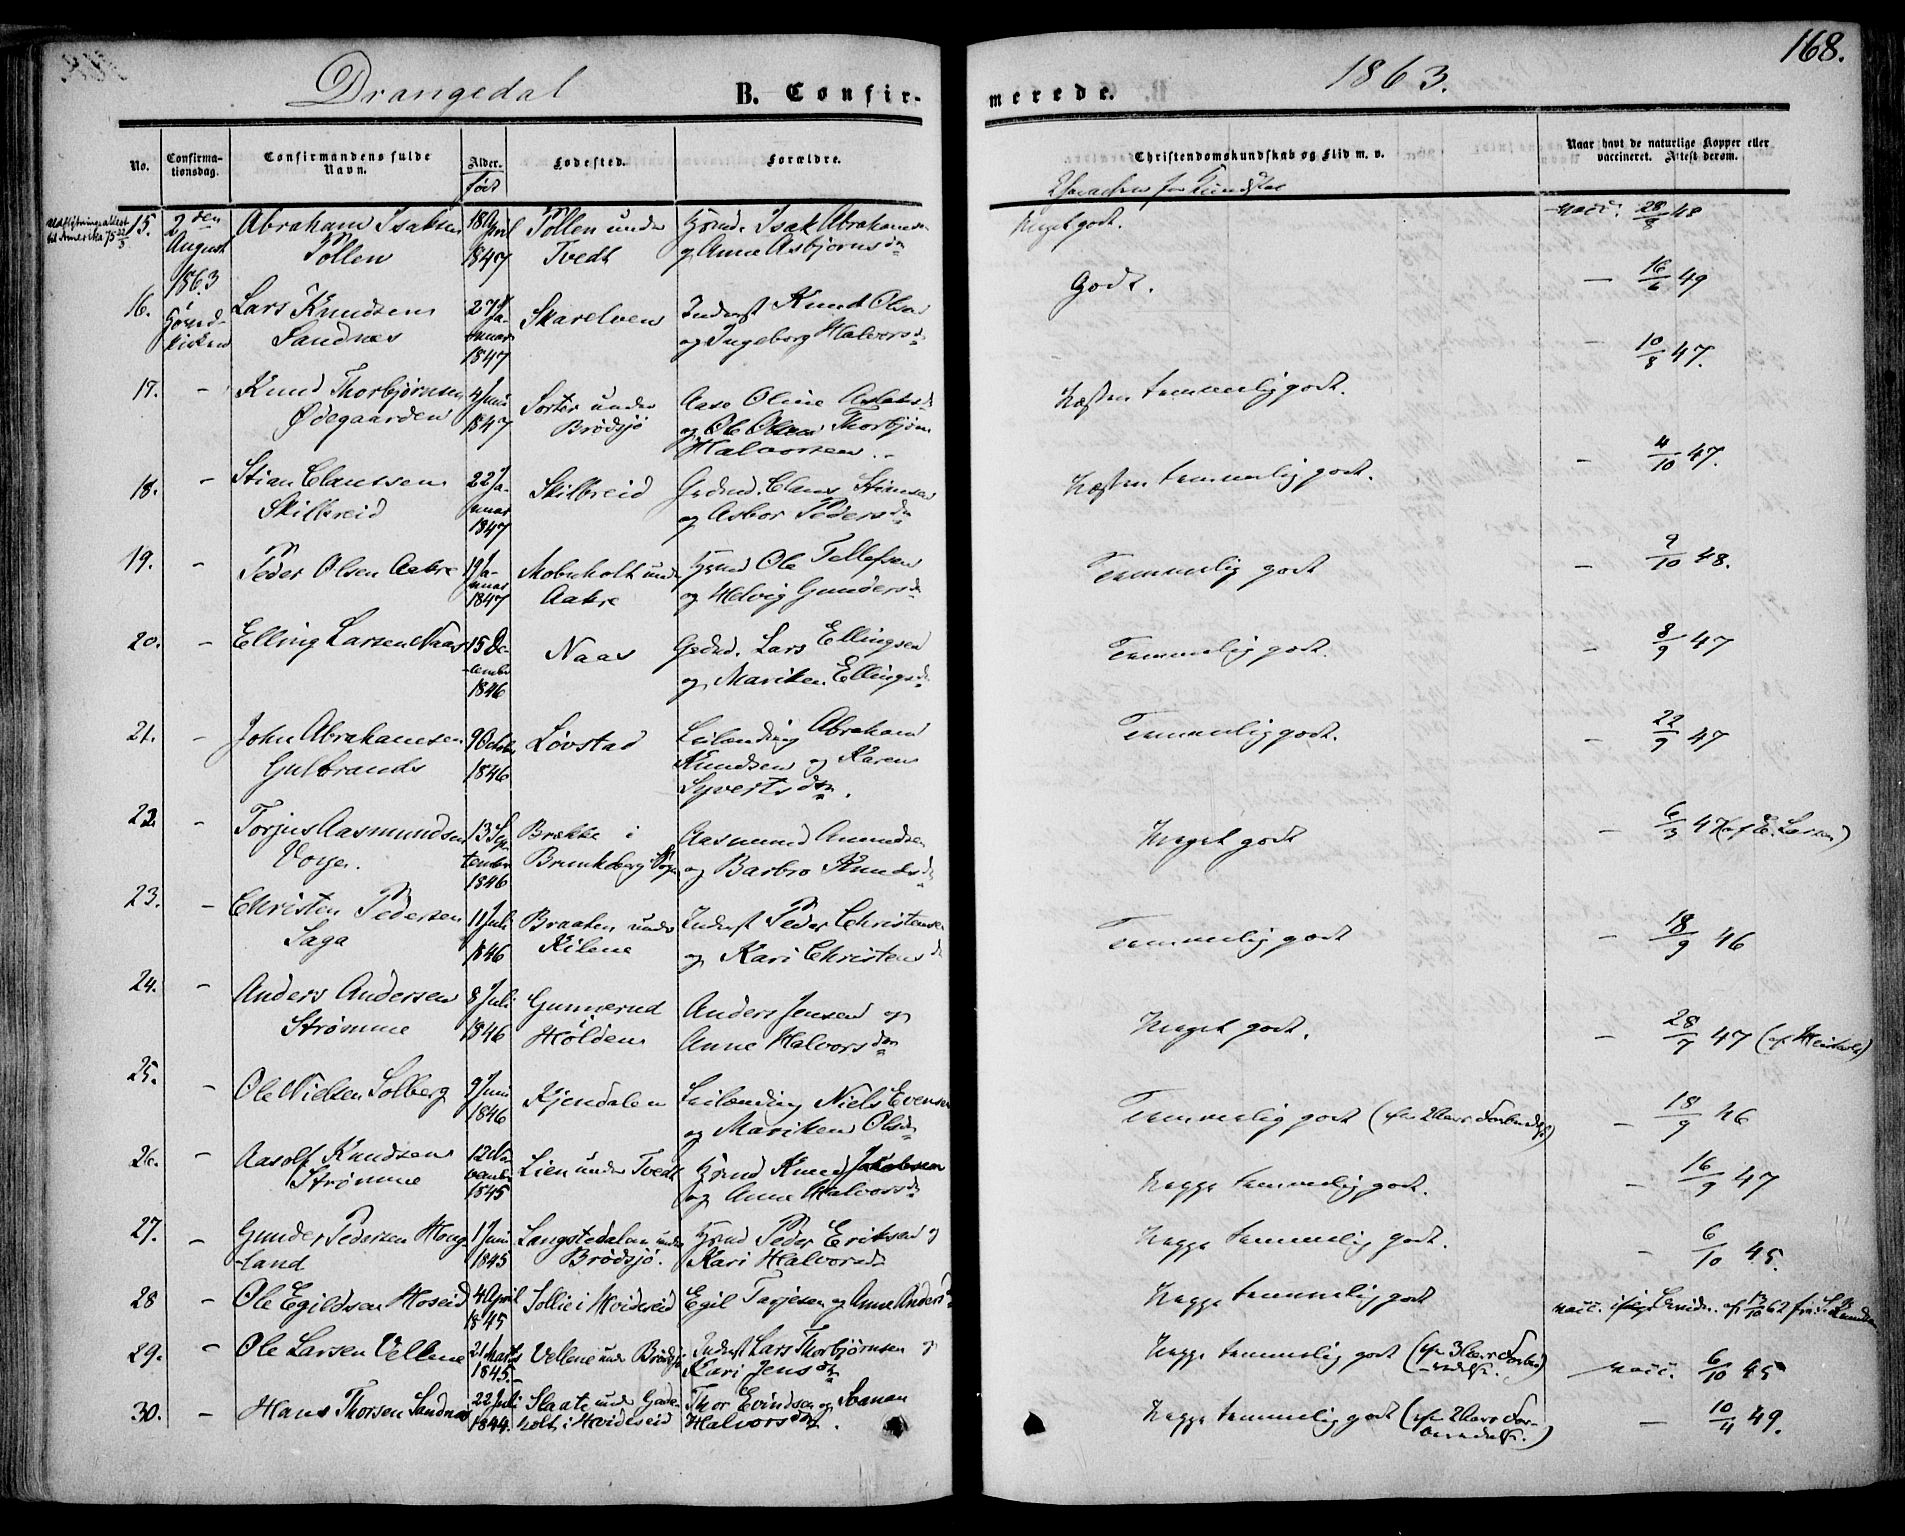 168.
Drangedal
B. Confirmerede.
1863.
No.
Confirmationsdag.
Confirmandens fulde Navn.
Alder. født
Fødested.
Forældre.
Christendomskundskab og Flid m. v.
Naar havt de naturlige Kopper eller vaccineret. Attest derom.
Udflytningsattest til Amerika 75
15. 2den August 1863 Abraham Isaksen Tollen 18 April 1847 Tollen under Tvedt Hsmd. Isak Abrahamsen og Anne Asbjørnsdn Meget godt. vacc. 28/8 48
16. Lars Knudsen Sandnes 27 Januar 1847 Skarelven Inderst Knud Olsen og Ingeborg Halvorsdn Godt. – 16/6 49
17. – Knud Thorbjørnsen Ødegaarden 4 Juni 1847 Sorter under Brødsjø Aase Oline Aslaksdn og Ole Olsen Thorbjørn Halvorsen. Næsten temmelig godt. – 10/8 47.
18. – Stian Claussen Skilbreid 22 Januar 1847 Skilbreid Grdmd. Claus Stiansen og Asbor Pedersdn Næsten temmelig godt. – 4/10 47.
19. – Peder Olsen Aakre 19 Januar 1847 Mobnholt under Aakre Hsmd Ole Tellefsen og Helvig Gundersdn Temmelig godt – 9/10 48.
20. – Elling Larsen Naas 15 December 1846 Naas Grdmd. Lars Ellingsen og Mariken Ellingsdn Temmelig godt. – 8/9 47
21. – John Abrahamsen Gulbrands 9 October 1846 Løvstad Leilænding Abraham Knudsen og Karen Syvertsdn. Temmelig godt. – 22/9 47
22. – Torjus Aasmundsen Vorje. 13 September 1846 Brække i Brunkeberg Aasmund Amundsen og Barbro Knudsdn Meget godt – 6/3 47 (af E. Larsen)
23. – Christen Pedersen Saga 11 Juli 1846 Braaten under Kilene Inderst Peder Christensen og Kari Christensdn Temmelig godt – 18/9 46
24. – Anders Andersen Strømme 8 Juli 1846 Gunnerud i Holden Anders Jensen og Anne Halvorsdn Meget godt. – 28/7 47
25. – Ole Nielsen Solberg 9 Juni 1846 Kjendalen Leilænding Niels Evensen og Mariken Olsdn Temmelig godt – 18/9 46
26. – Aasolf Knudsen Strømme 12 November 1845 Lien under Tvedt Hsmd Knud Jakobsen og Anne Halvorsdn Neppe temmelig godt. – 16/9 47
27. – Gunder Pedersen Hougland 1 Juni 1845 Langstedalen under Brødsjø. Hsmd Peder Eriksen og Kari Halvorsdn Neppe temmelig godt. – 6/10 45.
28 – Ole Egildsen Moseid 4 April 1845 Sollie i Hvideseid Egil Tarjesen og Anne Andersd Neppe temmelig godt vacc. 13/10 62
29. – Ole Larsen Vellene 21 Marts 1845. Vellene under Brødsjø Inderst Lars Thorbjørnsen og Kari Jensdn Neppe temmelig godt vacc. 6/10 45
30. – Hans Thorsen Sandnæs 22 Juli 1844. Slaate i Hvideseid Thor Evindsen og Svanau Halvorsdn. Neppe temmelig godt – 10/4 49.